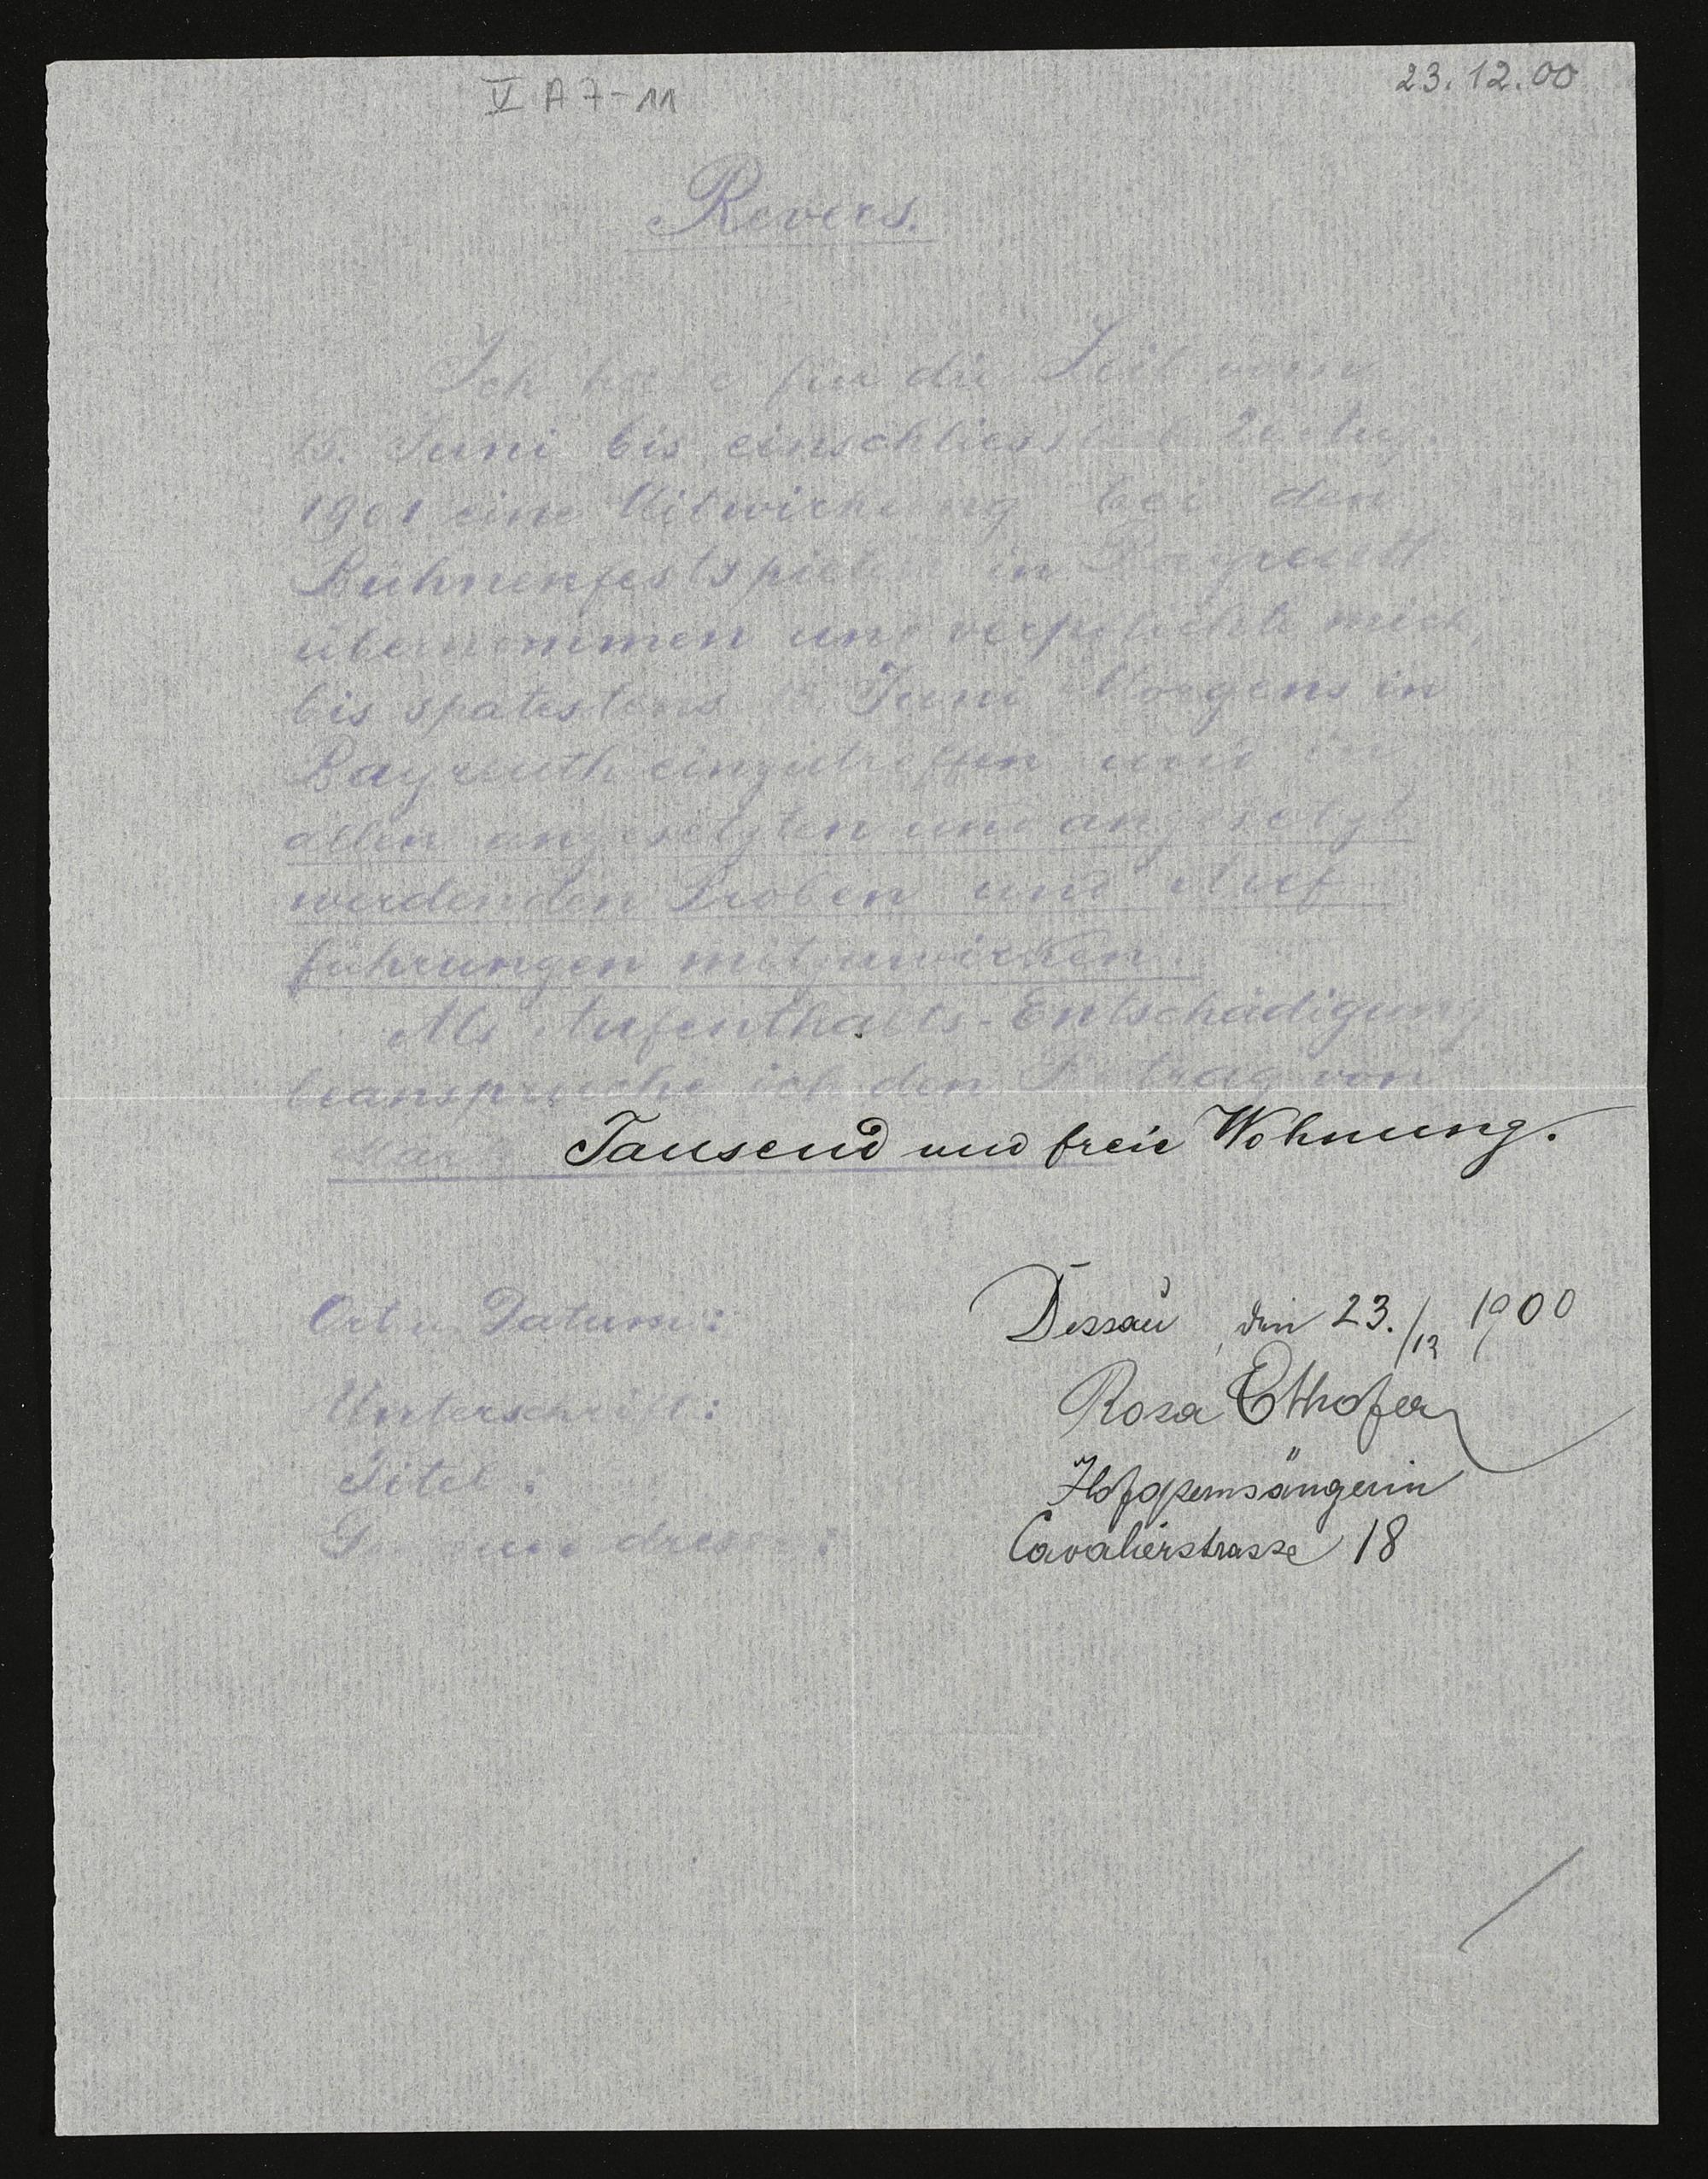 V A 7-11
23.12.00
Revers.
Ich habe für die Zeit vom
15. Juni bis einschliesslich 20 Aug.
1901 eine Mitwirkung bei den
Bühnenfestspielen in Bayreuth
übernommen und verpflichte mich,
bis spätestens 15. Juni Morgens in
Bayreuth einzutreffen und in
allen angesetzten und angesetzt
werdenden Proben und Auf
führungen mitzuwirken.
Als Aufenthalts-Entschädigung
beanspruche ich den Betrag von
Mark Tausend und freie Wohnung.
Ort u. Datum: Dessau, den 23./12 1900
Unterschrift: Rosa Ethofer
Titel: Hofopernsängerin
Cavalierstrasse 18